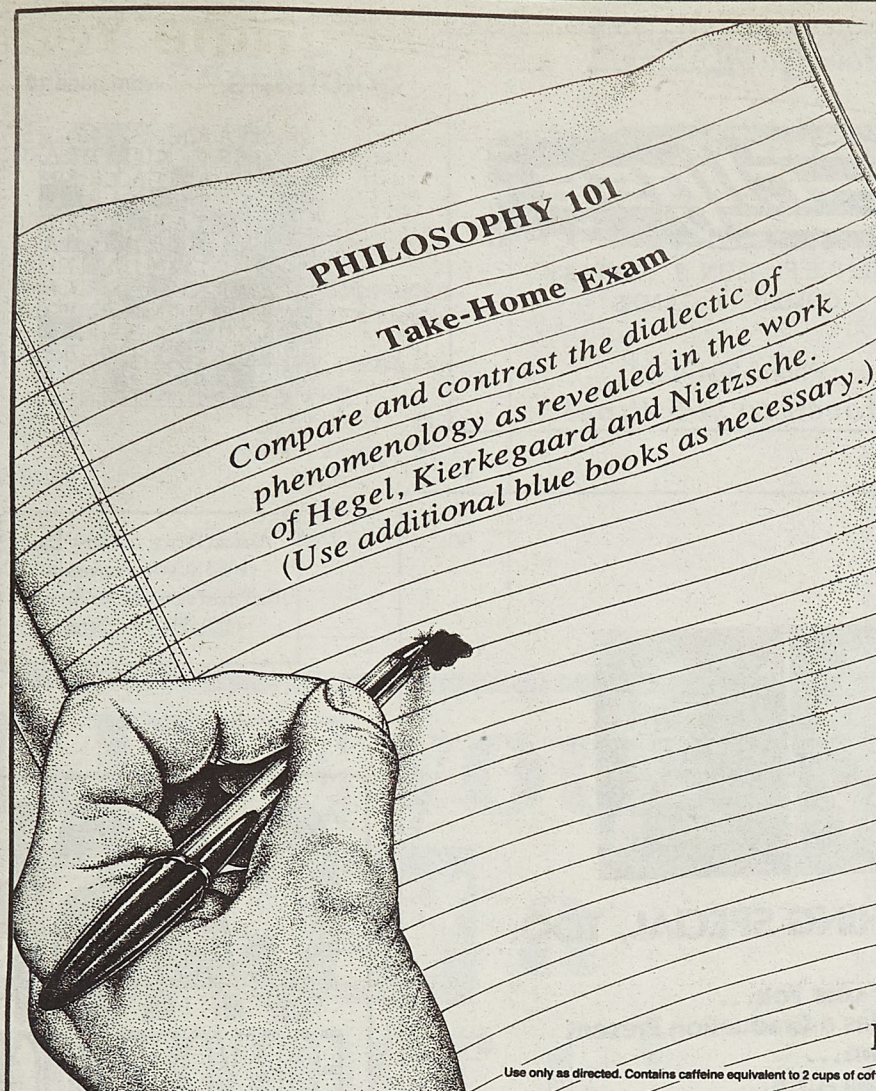 PHILOSOPHY 101
Take-Home Exam
Compare and contrast the dialectic of
phenomenology as revealed in the work
of Hegel, Kierkegaard and Nietzsche.
(Use additional blue books as necessary.)
Use only as directed. Contains caffeine equivalent to 2 cups of cof